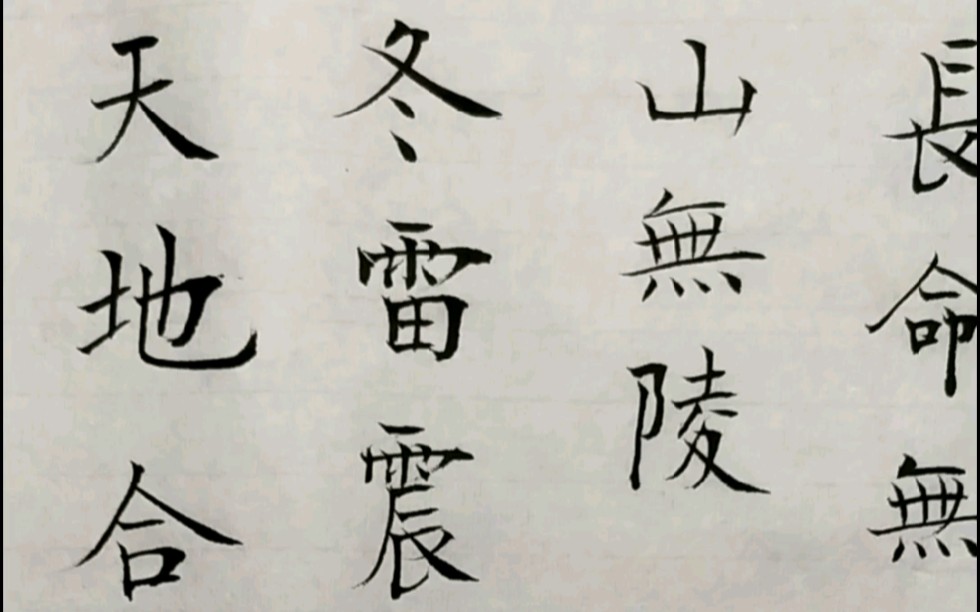 長命無
山無陵
冬雷震
天地合